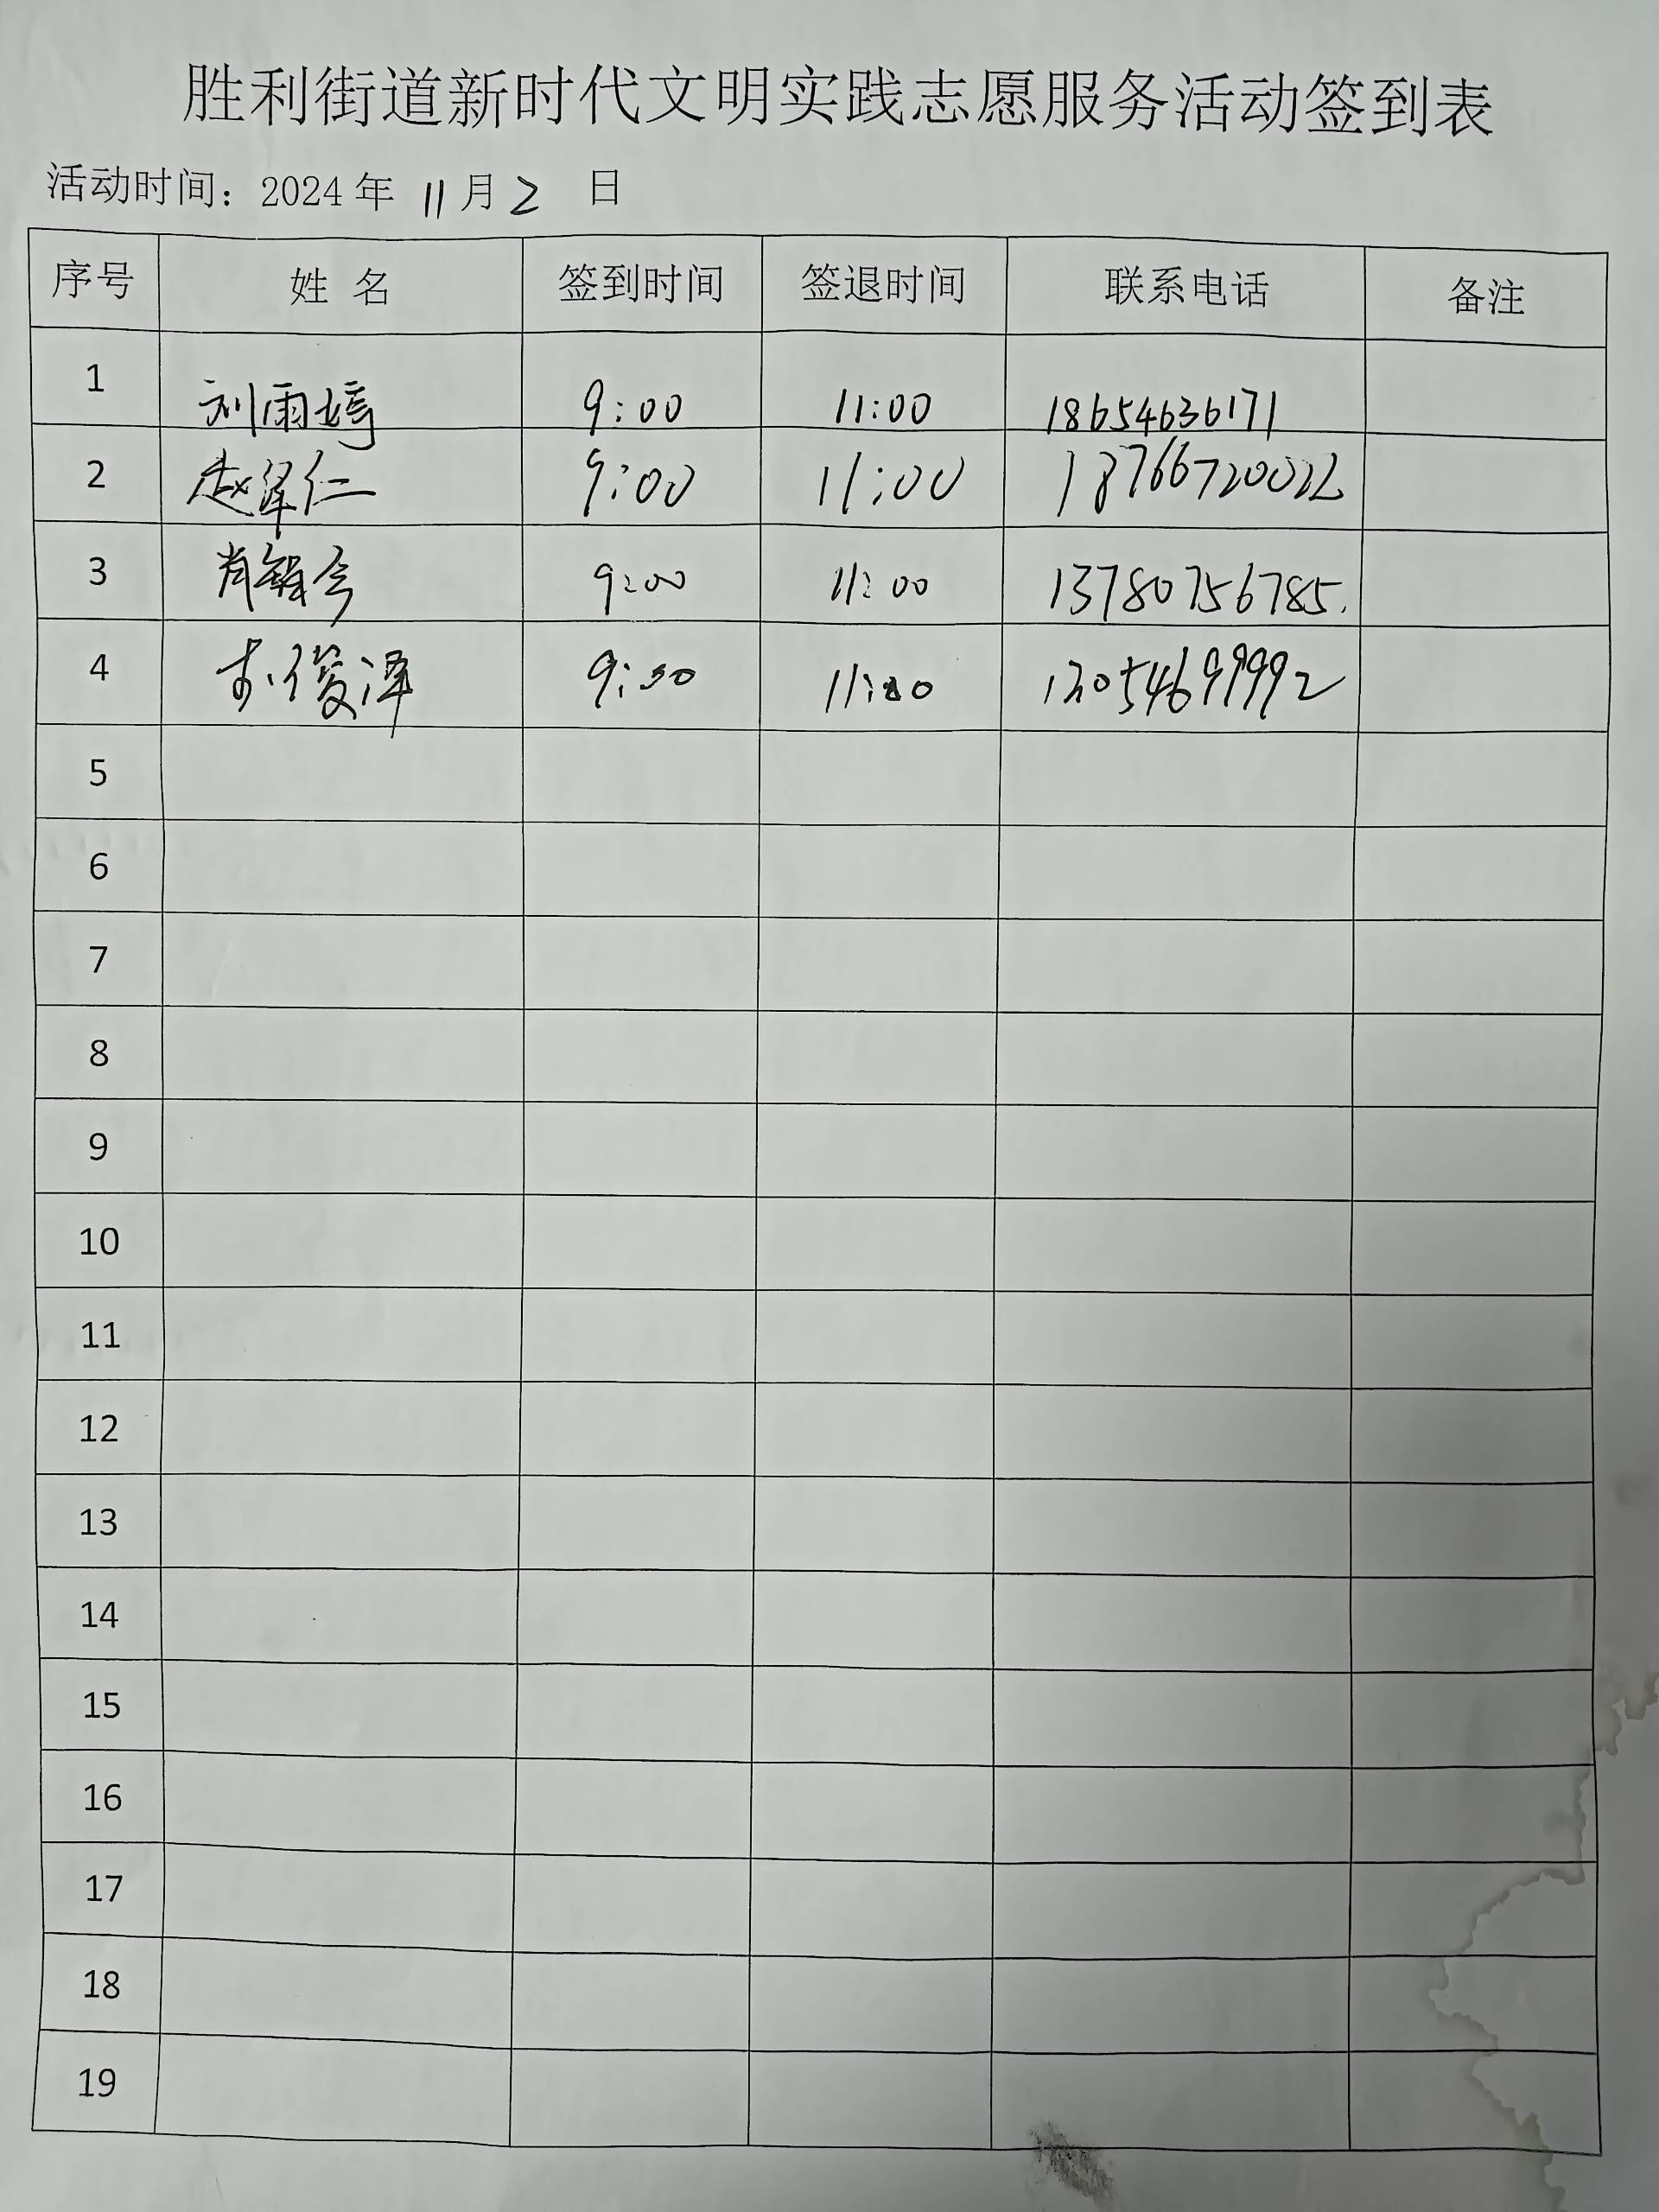 胜利街道新时代文明实践志愿服务活动签到表
活动时间：2024 年 11 月 2 日
序号 姓 名 签到时间 签退时间 联系电话 备注
1 刘雨婷 9:00 11:00 18654636171
2 赵泽仁 9:00 11:00 18766720022
3 肖 9:00 11:00 13780756785.
4 俊泽 11:00
5
6
7
8
9
10
11
12
13
14
15
16
17
18
19